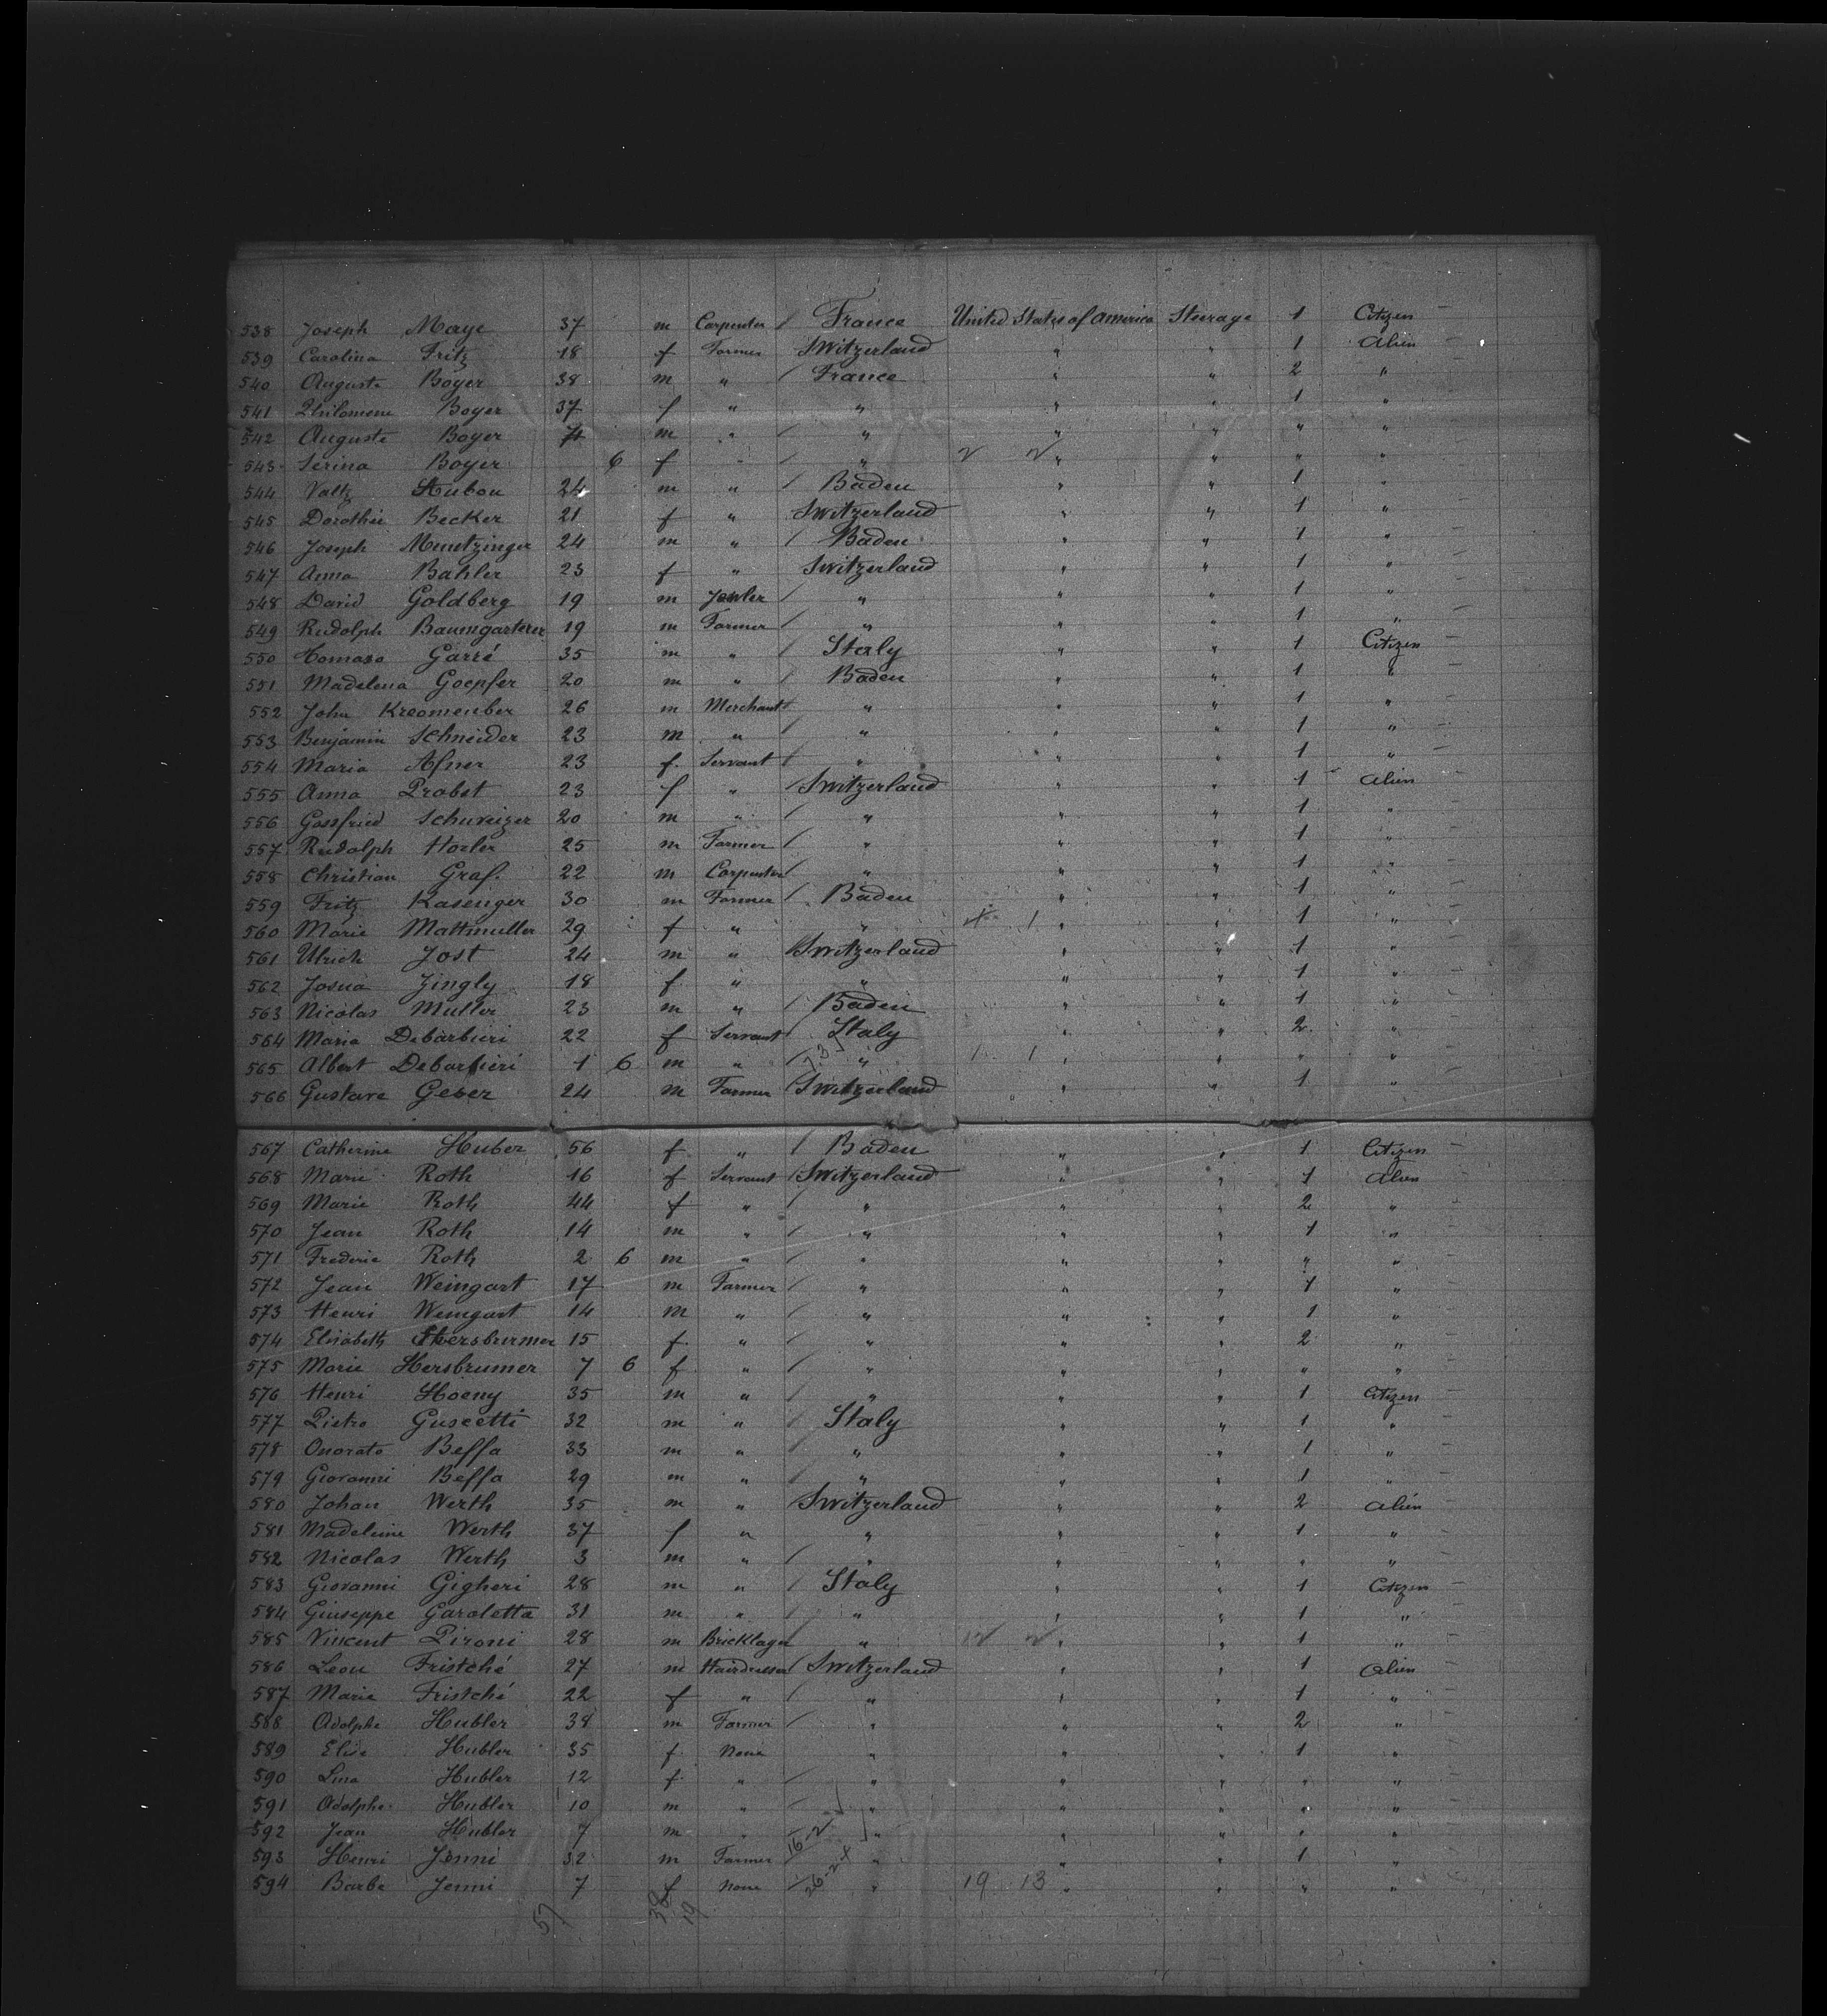 538 Joseph Maye 37 m Carpenter / France United States of America Steerage 1 Citizen —
539 Carolina Fritz 18 f Farmer Switzerland " " 1 Alien —
540 Auguste Boyer 38 m " / France " " 2 "
541 Philomene Boyer 37 f " " " " 1 "
542 Auguste Boyer m " / " " " " "
543 Serina Boyer 6 f " / " " " " "
544 Valtz Aubon 24 m " / Baden " " 1 "
545 Dorothée Becker 21 f " Switzerland " " 1 "
546 Joseph Muntzinger 24 m " / Baden " " 1 "
547 Anna Bahler 23 f " Switzerland " " 1 "
548 David Goldberg 19 m Jewler / " " " 1 "
549 Rudolph Baumgarterer 19 m Farmer / " " " 1 "
550 Tomaso Garré 35 m " / Italy " " 1 Citizen —
551 Madelena Goepfer 20 m " / Baden " " 1 "
552 John Kreomenber 26 m Merchant " " " 1 "
553 Benjamin Schneider 23 m " / " " " 1 "
554 Maria Afner 23 f. Servant / " " " 1 "
555 Anna Probst 23 f " / Switzerland " " 1 Alien —
556 Gossfried Schweizer 20 m " / " " " 1 "
557 Rudolph Hozler 25 m Farmer / " " " 1 "
558 Christian Graf. 22 m Carpenter " " " 1 "
559 Fritz Kasenger 30 m Farmer / Baden " " 1 "
560 Marie Mattmuller 29 f " " 1 " " 1 "
561 Ulrich Jost 24 m " / Switzerland " " 1 "
562 Josua Zingly 18 f " " " " 1 "
563 Nicolas Muller 23 m " / Baden " " 1 "
564 Maria Debarbieri 22 f Servant / Italy " " 2 "
565 Albert Debarbieri 1 6 m " / " 1 1 " " " "
566 Gustave Geber 24 m Farmer / Switzerland " " 1 "
567 Catherine Huber 56 f " / Baden " " 1 Citizen —
568 Marie Roth 16 f Servant / Switzerland " " 1 Alien —
569 Marie Roth 44 f " / " " " 2 "
570 Jean Roth 14 m " / " " " 1 "
571 Frederic Roth 2 6 m " / " " " " "
572 Jean Weingart 17 m Farmer / " " " 1 "
573 Henri Weingart 14 m " / " " " 1 "
574 Elisabeth Hersbrumer 15 f " / " " " 2 "
575 Marie Hersbrumer 7 6 f " / " " " " "
576 Henri Hoeny 35 m " / " " " 1 Citizen —
577 Pietro Guscetti 32 m " / Italy " " 1 "
578 Onorato Beffa 33 m " / " " " 1 "
579 Giovanni Beffa 29 m " / " " " 1 "
580 Johan Werth 35 m " / Switzerland " " 2 Alien —
581 Madeleine Werth 37 f " " " " 1 "
582 Nicolas Werth 3 m " / " " " " "
583 Giovanni Gigheri 28 m " / Italy " " 1 Citizen —
584 Giuseppe Garoletta 31 m " / " " " 1 "
585 Vincent Pironi 28 m Bricklayer " " " 1 "
586 Leon Fristché 27 m Hairdresser / Switzerland " " 1 Alien —
587 Marie Fristché 22 f " / " " " 1 "
588 Adolphe Hubler 38 m Farmer / " " " 2 "
589 Elise Hubler 35 f None " " " 1 "
590 Lina Hubler 12 f " / " " " " "
591 Adolphe Hubler 10 m " / " " " " "
592 Jean Hubler 7 m " / 16-2 " " " " "
593 Henri Jenni 32 m Farmer / " " " 1 "
594 Barbe Jenni 7 f None / 26-2-x " 19 13 " " " "
57 38 19